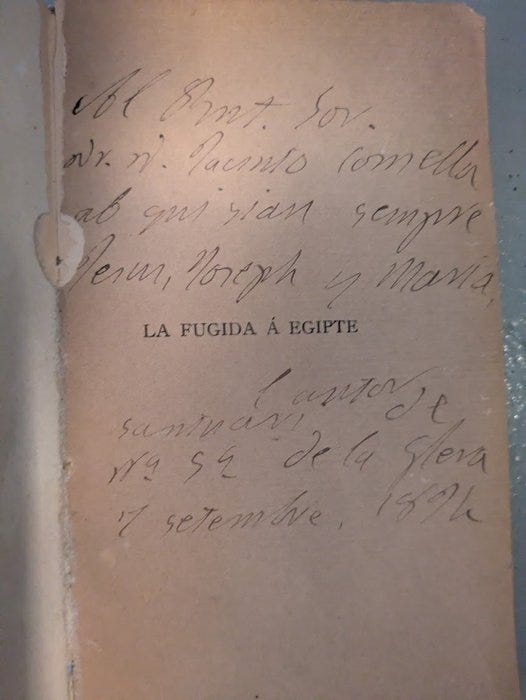 Al Rnt. Sor.
Dr. D. Jacinto Comella
ab qui sian sempre
Jesus, Joseph y Maria,
LA FUGIDA Á EGIPTE
l'autor
santuari de
Na. Sa. de la Gleva
7 setembre, 1894